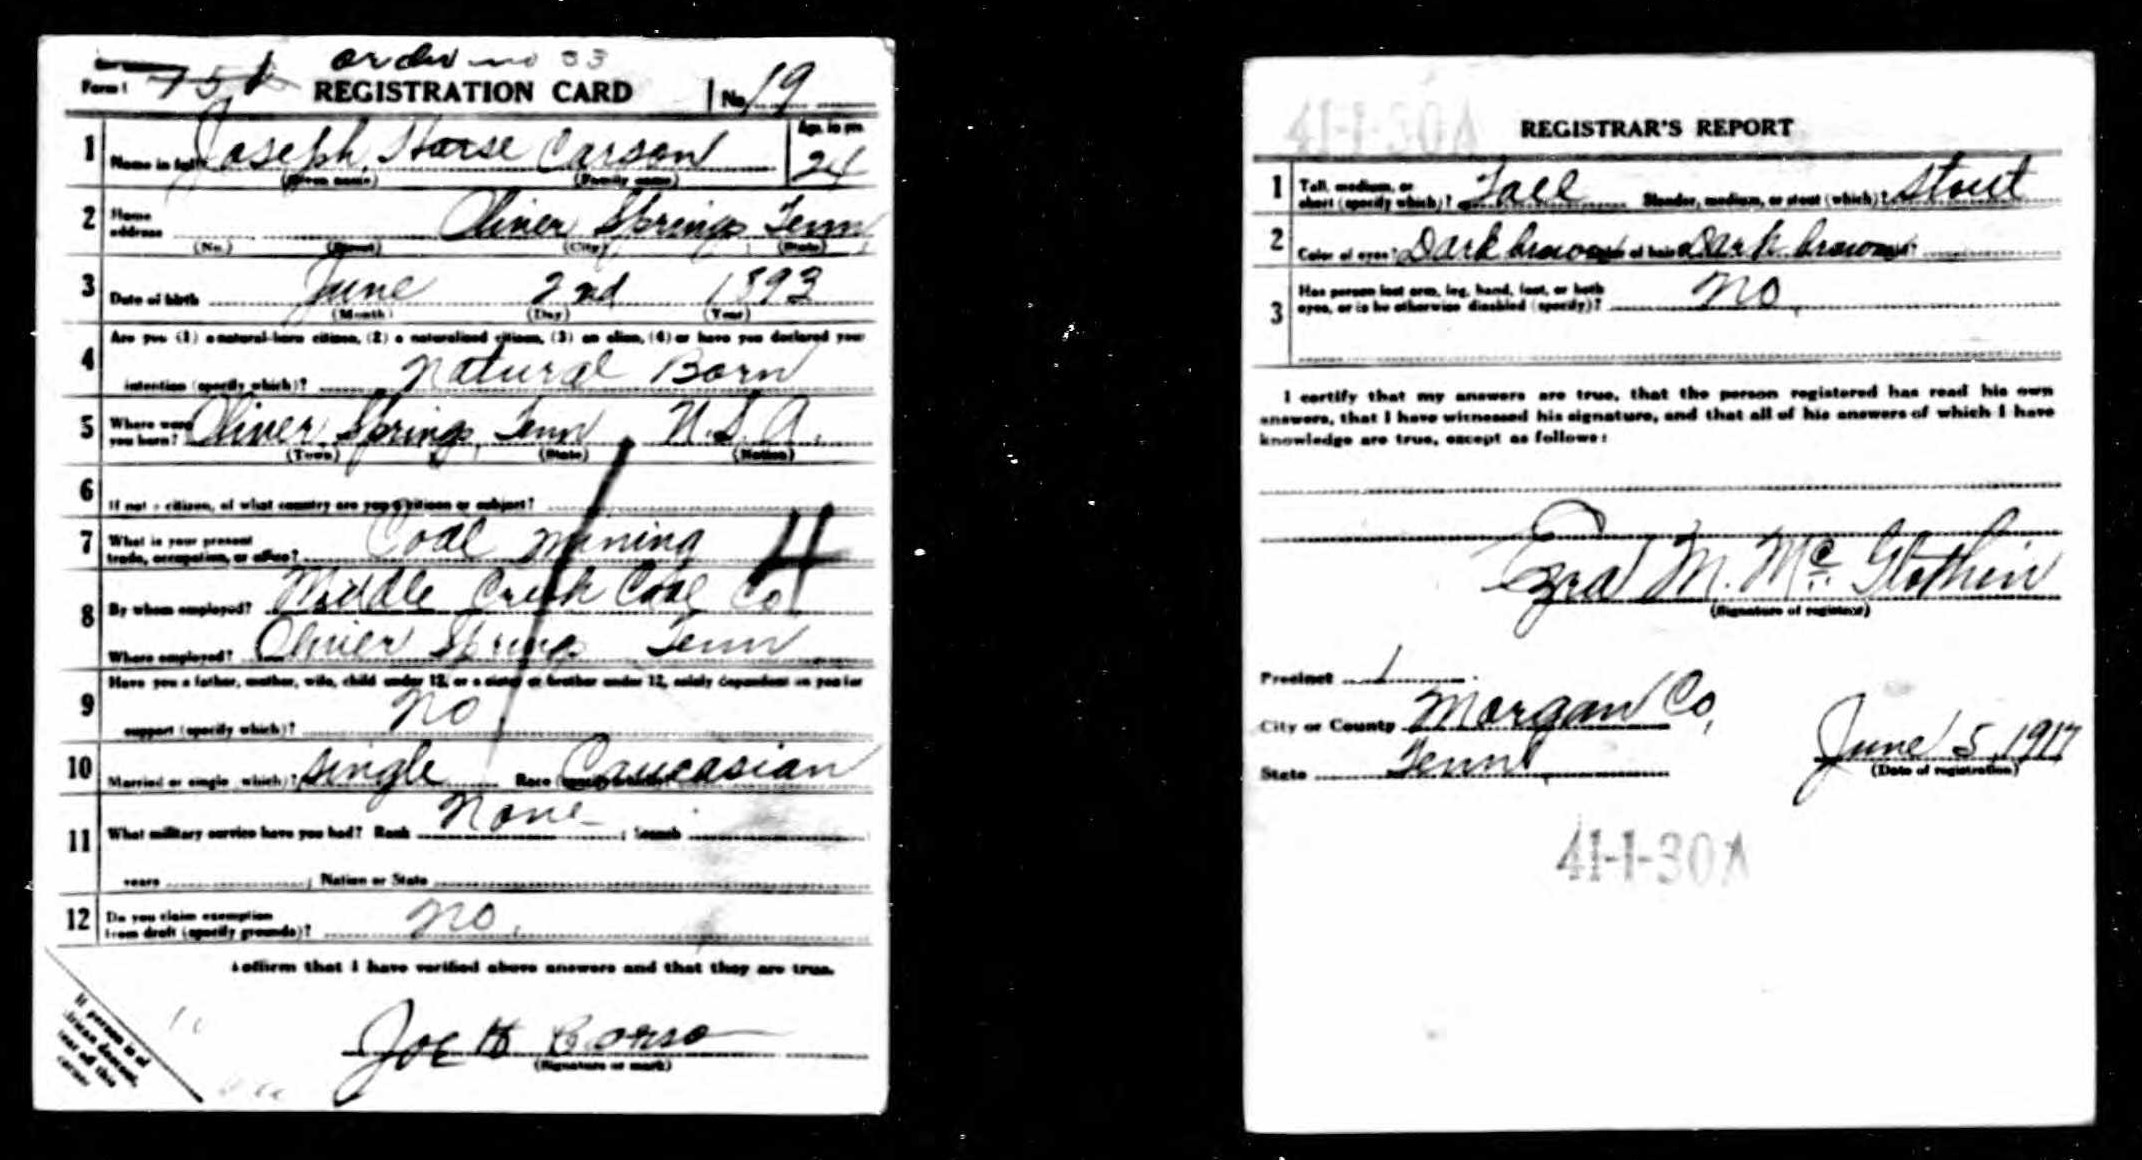 order no 33
Form 1 75 REGISTRATION CARD No. 19
1 Name in full Joseph Horse Carson Age, in yrs. 24
(Given name) (Family name)
2 Home address Oliver Springs Tenn
(No.) (Street) (City) (State)
3 Date of birth June 2nd 1893
(Month) (Day) (Year)
4 Are you (1) a natural-born citizen, (2) a naturalized citizen, (3) an alien, (4) or have you declared your
intention (specify which)? Natural Born
5 Where were you born? Oliver Springs, Tenn U.S.A.
(Town) (State) (Nation)
6 If not a citizen, of what country are you a citizen or subject?
7 What is your present trade, occupation, or office? Coal Mining 4
8 By whom employed? Middle Creek Coal Co
Where employed? Oliver Springs Tenn
9 Have you a father, mother, wife, child under 12, or a sister or brother under 12, solely dependent on you for
support (specify which)? No
10 Married or single (which)? Single Race (specify which)? Caucasian
11 What military service have you had? Rank None ; branch
years ; Nation or State
12 Do you claim exemption from draft (specify grounds)? No.
I affirm that I have verified above answers and that they are true.
Joe H Corso
(Signature or mark)
If person is of
African descent,
tear off this
corner
41-1-30A
REGISTRAR'S REPORT
1 Tall, medium, or short (specify which)? Tall Slender, medium, or stout (which)? Stout
2 Color of eyes? Dark brown Color of hair? Dark brown
3 Has person lost arm, leg, hand, foot, or both
eyes, or is he otherwise disabled (specify)? No
I certify that my answers are true, that the person registered has read his own
answers, that I have witnessed his signature, and that all of his answers of which I have
knowledge are true, except as follows:
Ezra M. McGlothin
(Signature of registrar)
Precinct 1
City or County Morgan Co,
State Tenn June 5, 1917
(Date of registration)
41-1-30A